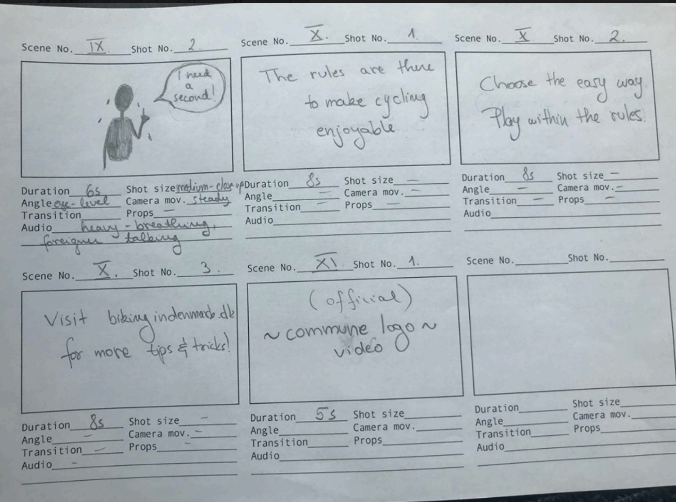 Scene No. IX. Shot No. 2
I need
a
second!
Duration 6s Shot size medium-close up
Angle eye-level Camera mov. steady
Transition Props —
Audio heavy-breathing,
foreigner talking
Scene No. X. Shot No. 1
The rules are there
to make cycling
enjoyable
Duration 8s Shot size —
Angle — Camera mov. —
Transition — Props —
Audio
Scene No. X Shot No. 2.
Choose the easy way.
Play within the rules.
Duration 8s Shot size —
Angle — Camera mov. —
Transition — Props —
Audio
Scene No. X. Shot No. 3
Visit bikingindenmark.dk
for more tips & tricks!
Duration 8s Shot size —
Angle — Camera mov. —
Transition — Props —
Audio —
Scene No. XI. Shot No. 1.
(official)
~ commune logo ~
video
Duration 5s Shot size
Angle Camera mov.
Transition Props
Audio
Scene No. Shot No.
Duration Shot size
Angle Camera mov.
Transition Props
Audio